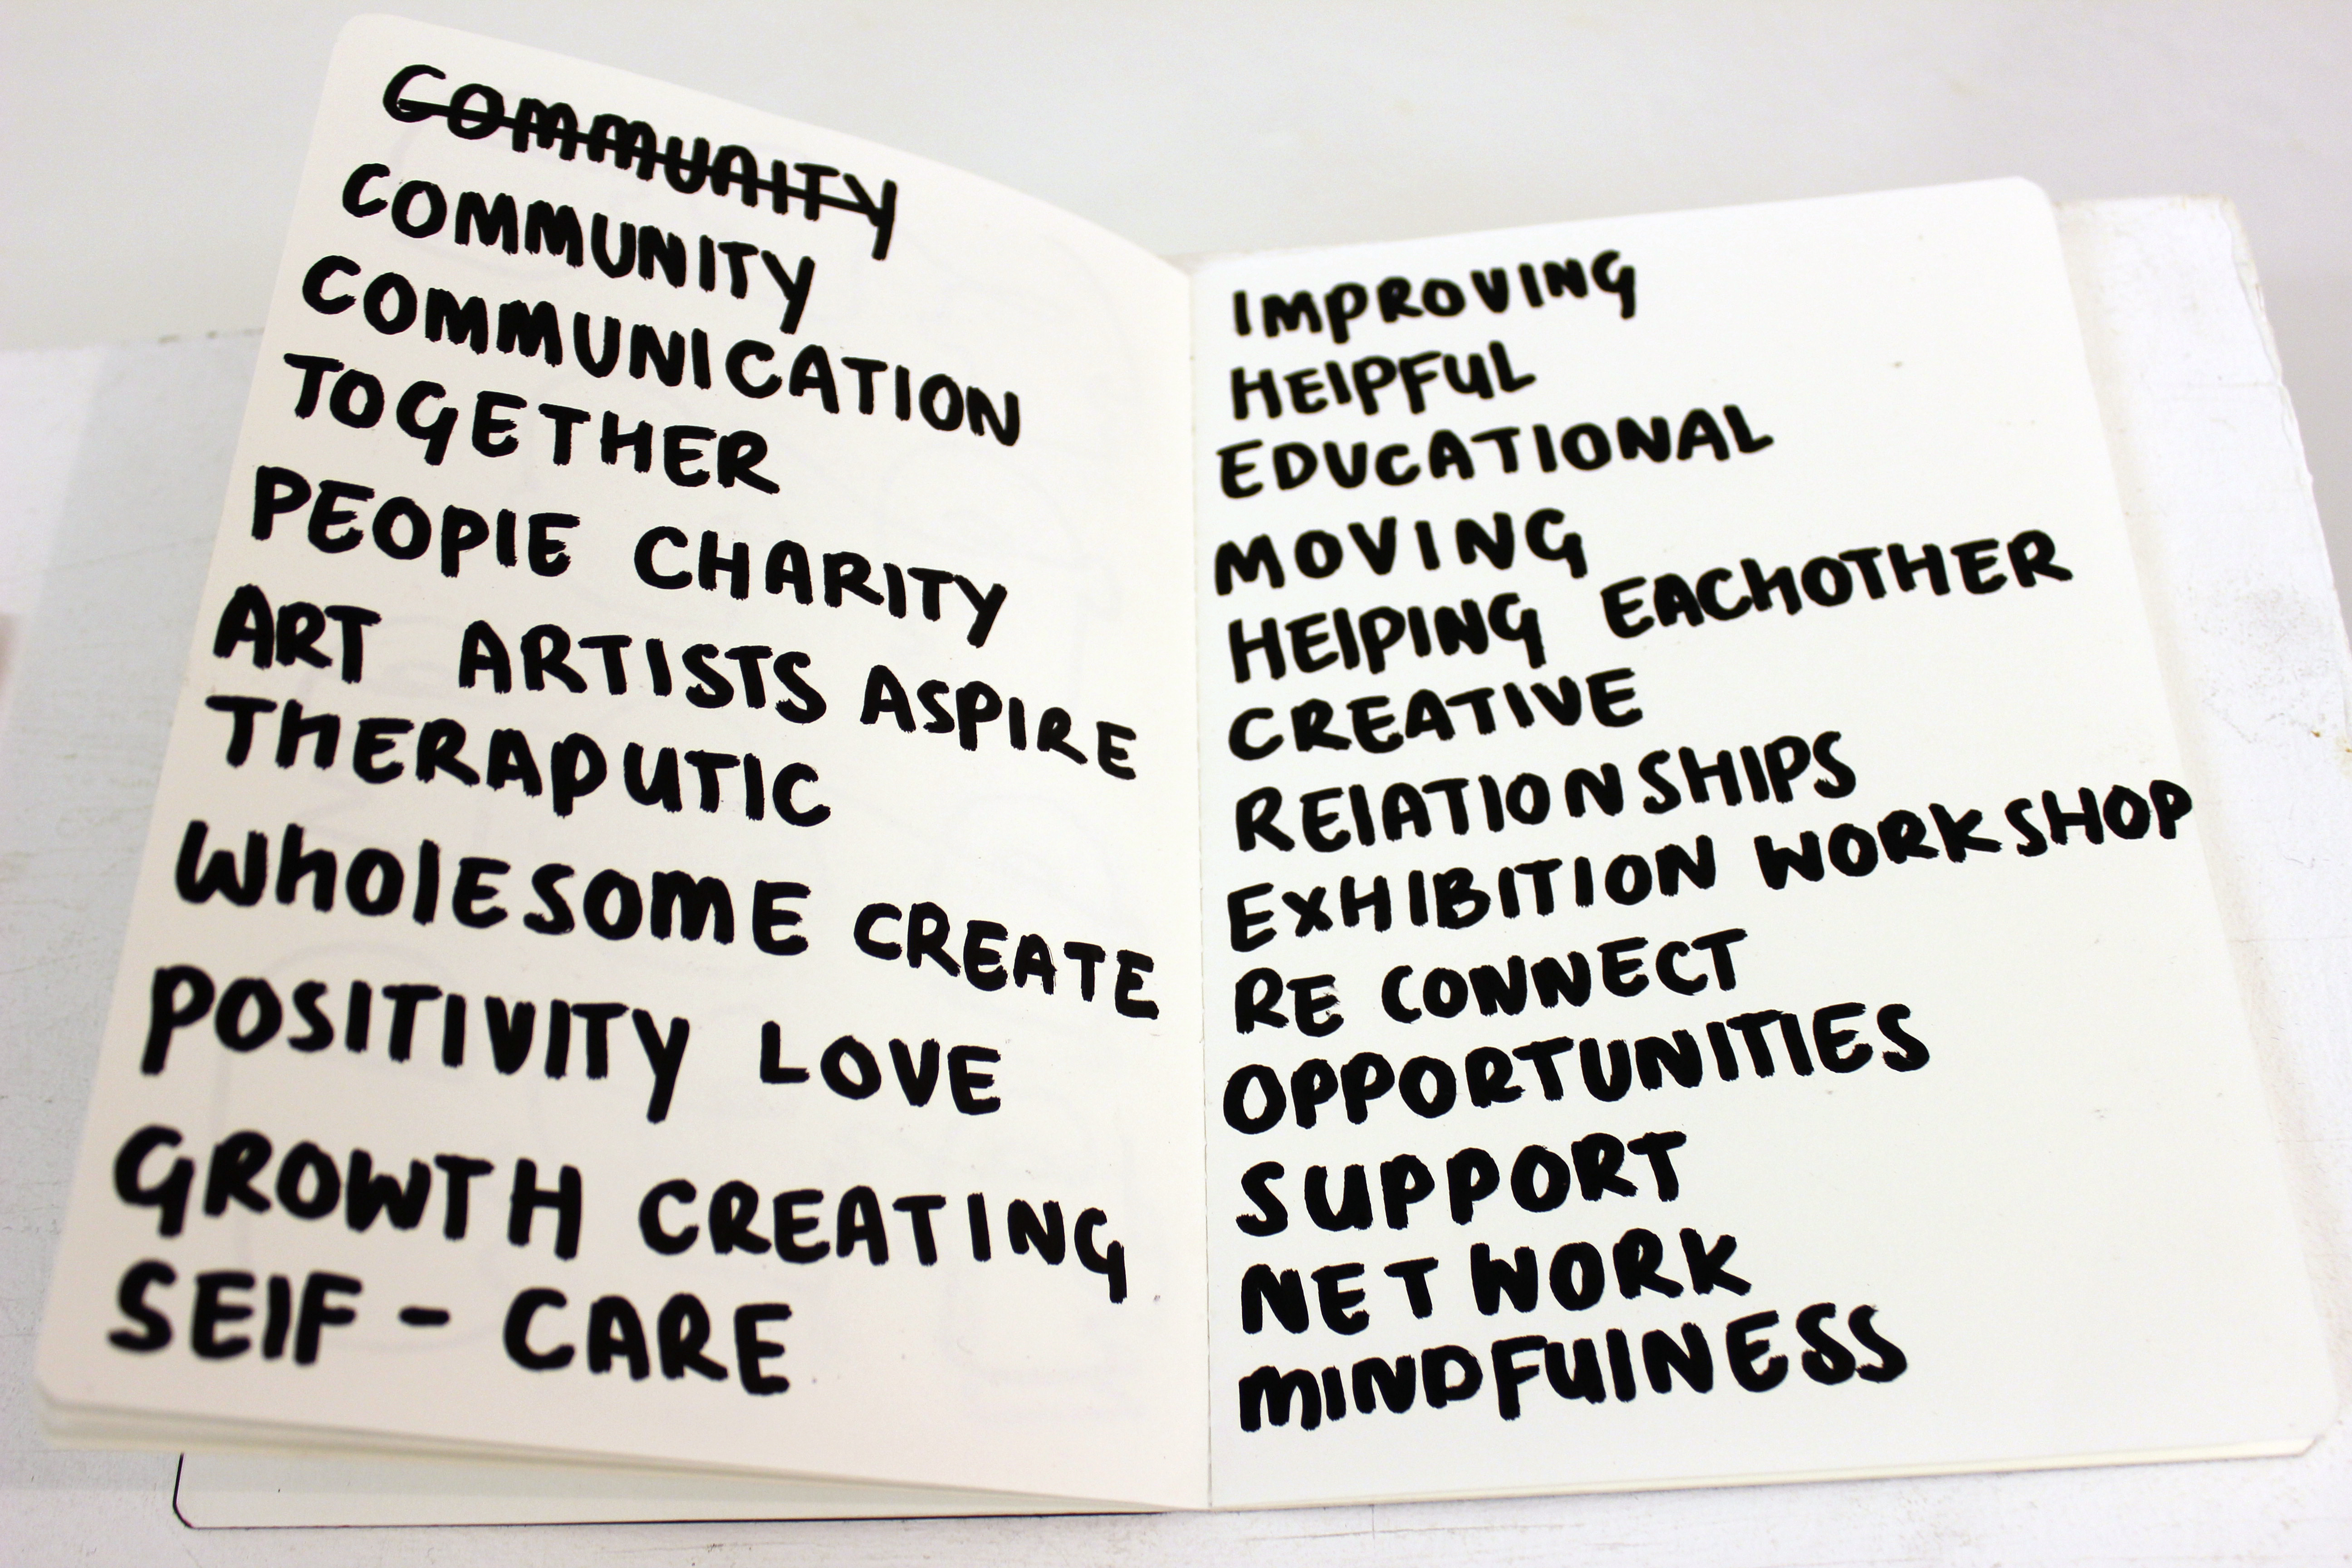 COMMUAITY
COMMUNITY
COMMUNICATION
TOGETHER
PEOPlE CHARITY
ART ARTISTS ASPIRE
THERAPUTIC
WhOlESOME CREATE
POSITIVITY LOVE
GROWTH CREATING
SElF - CARE
IMPROVING
HElPFUL
EDUCATIONAL
MOVING
HElPING EACHOTHER
CREATIVE
RElATIONSHIPS
EXHIBITION WORKSHOP
RE CONNECT
OPPORTUNITIES
SUPPORT
NETWORK
MINDFUlNESS